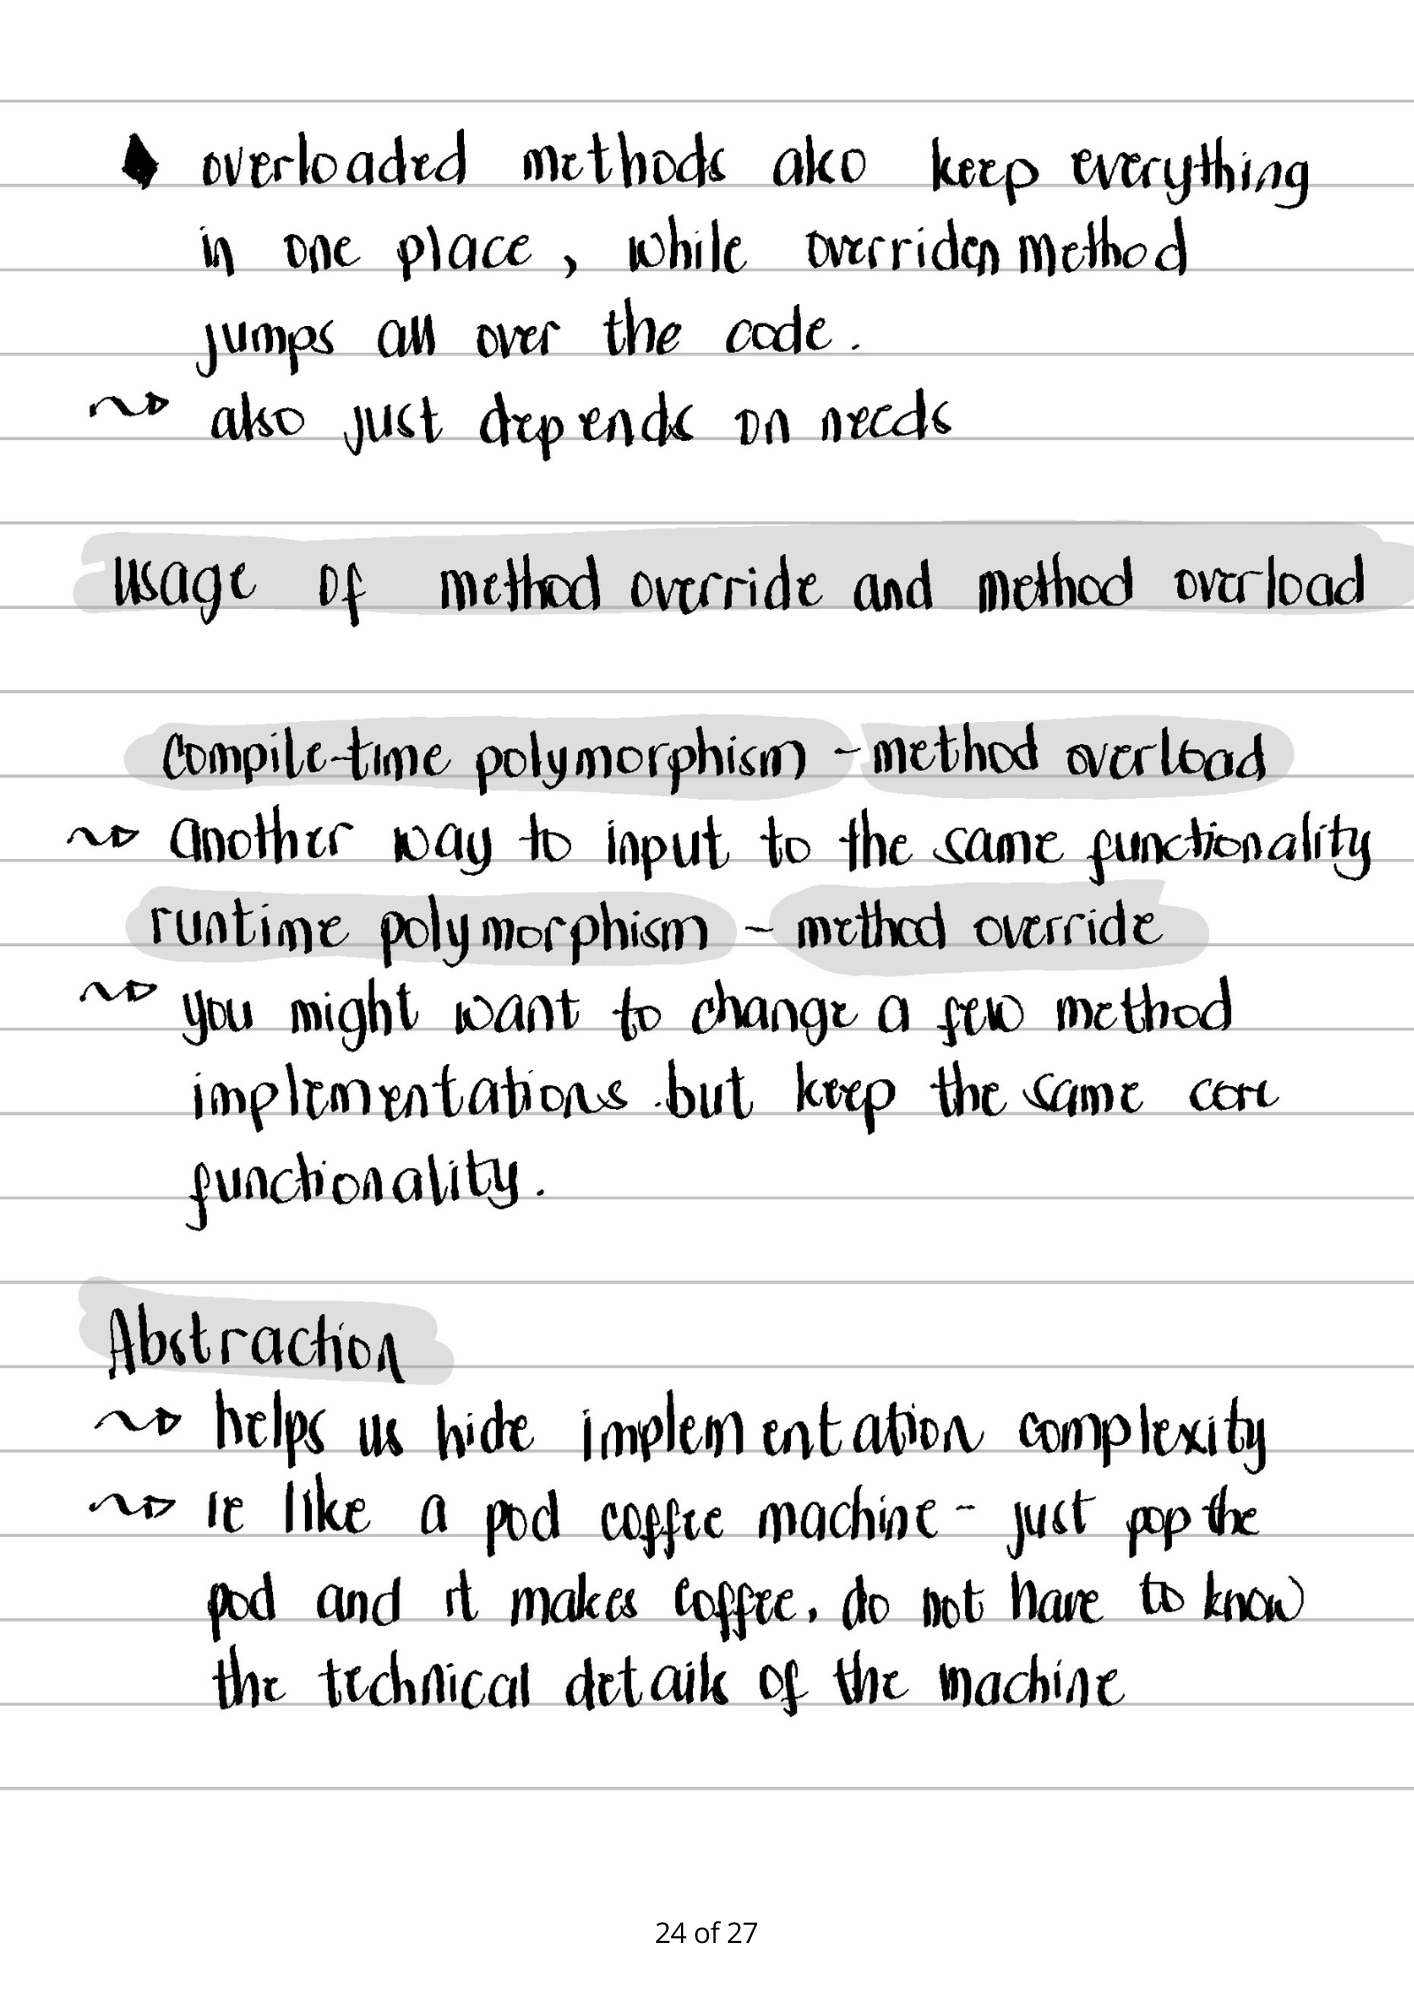 overloaded methods also keep everything
in one place, while overriden method
jumps all over the code.
also just depends on needs
Usage of method override and method overload
Compile-time polymorphism - method overload
another way to input to the same functionality
runtime polymorphism - method override
you might want to change a few method
implementations but keep the same core
functionality.
Abstraction
helps us hide implementation complexity
ie like a pod coffee machine - just pop the
pod and it makes coffee. do not have to know
the technical details of the machine
24 of 27